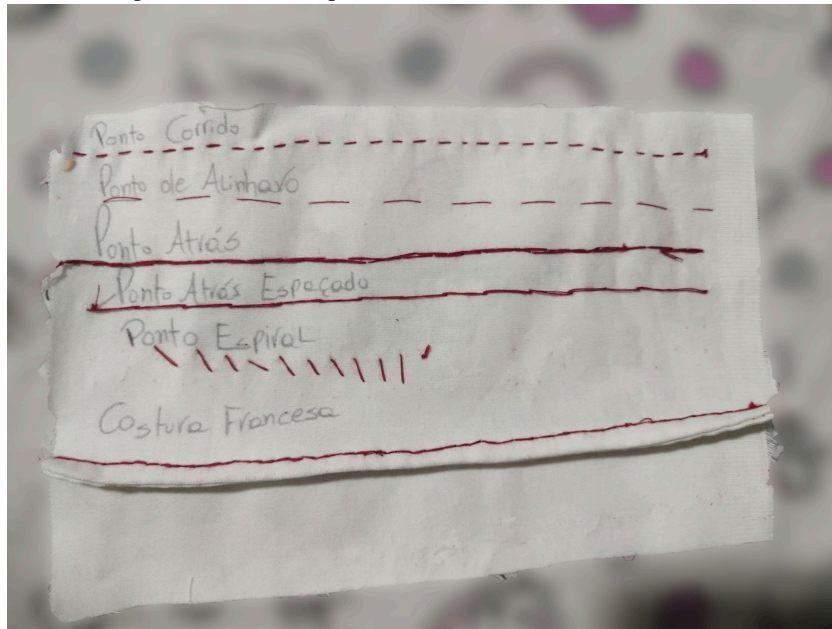 Ponto Corrido
Ponto de Alinhavo
Ponto Atrás
Ponto Atrás Espaçado
Ponto Espiral
Costura Francesa